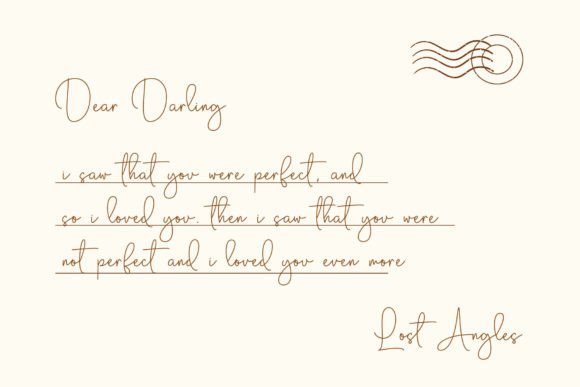 Dear Darling
i saw that you were perfect, and
so i loved you. then i saw that you were
not perfect and i loved you even more
Lost Angles